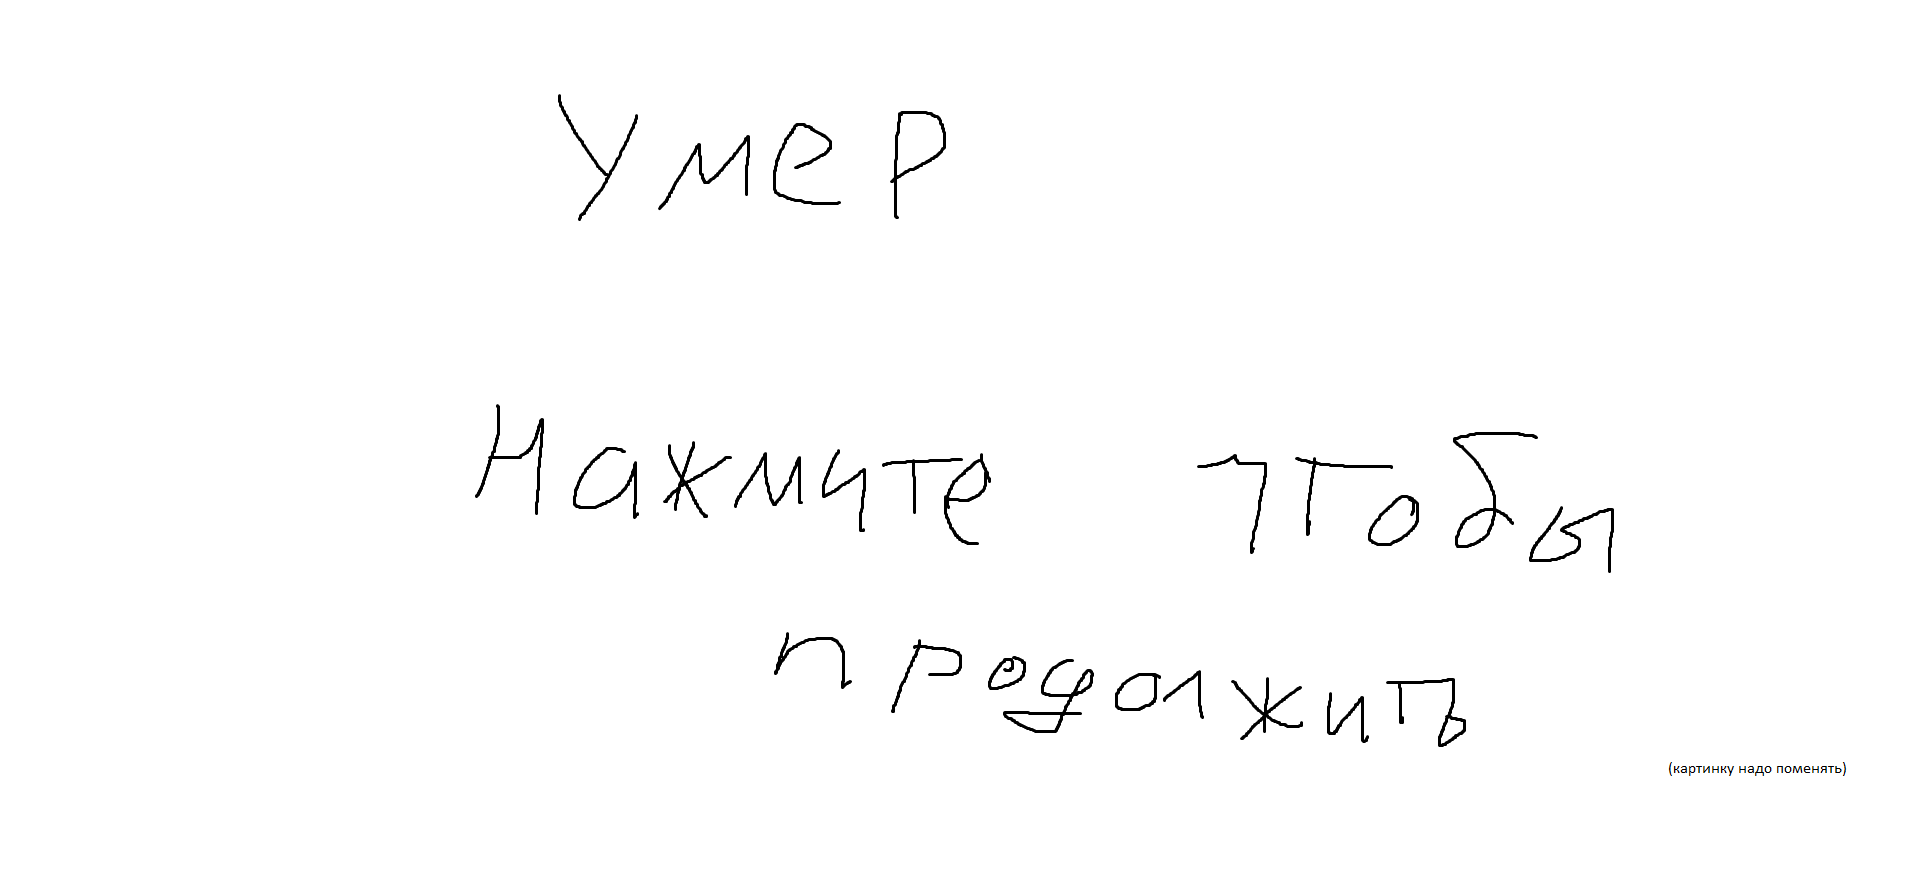 умер
Нажмите чтобы
продолжить
(картинку надо поменять)